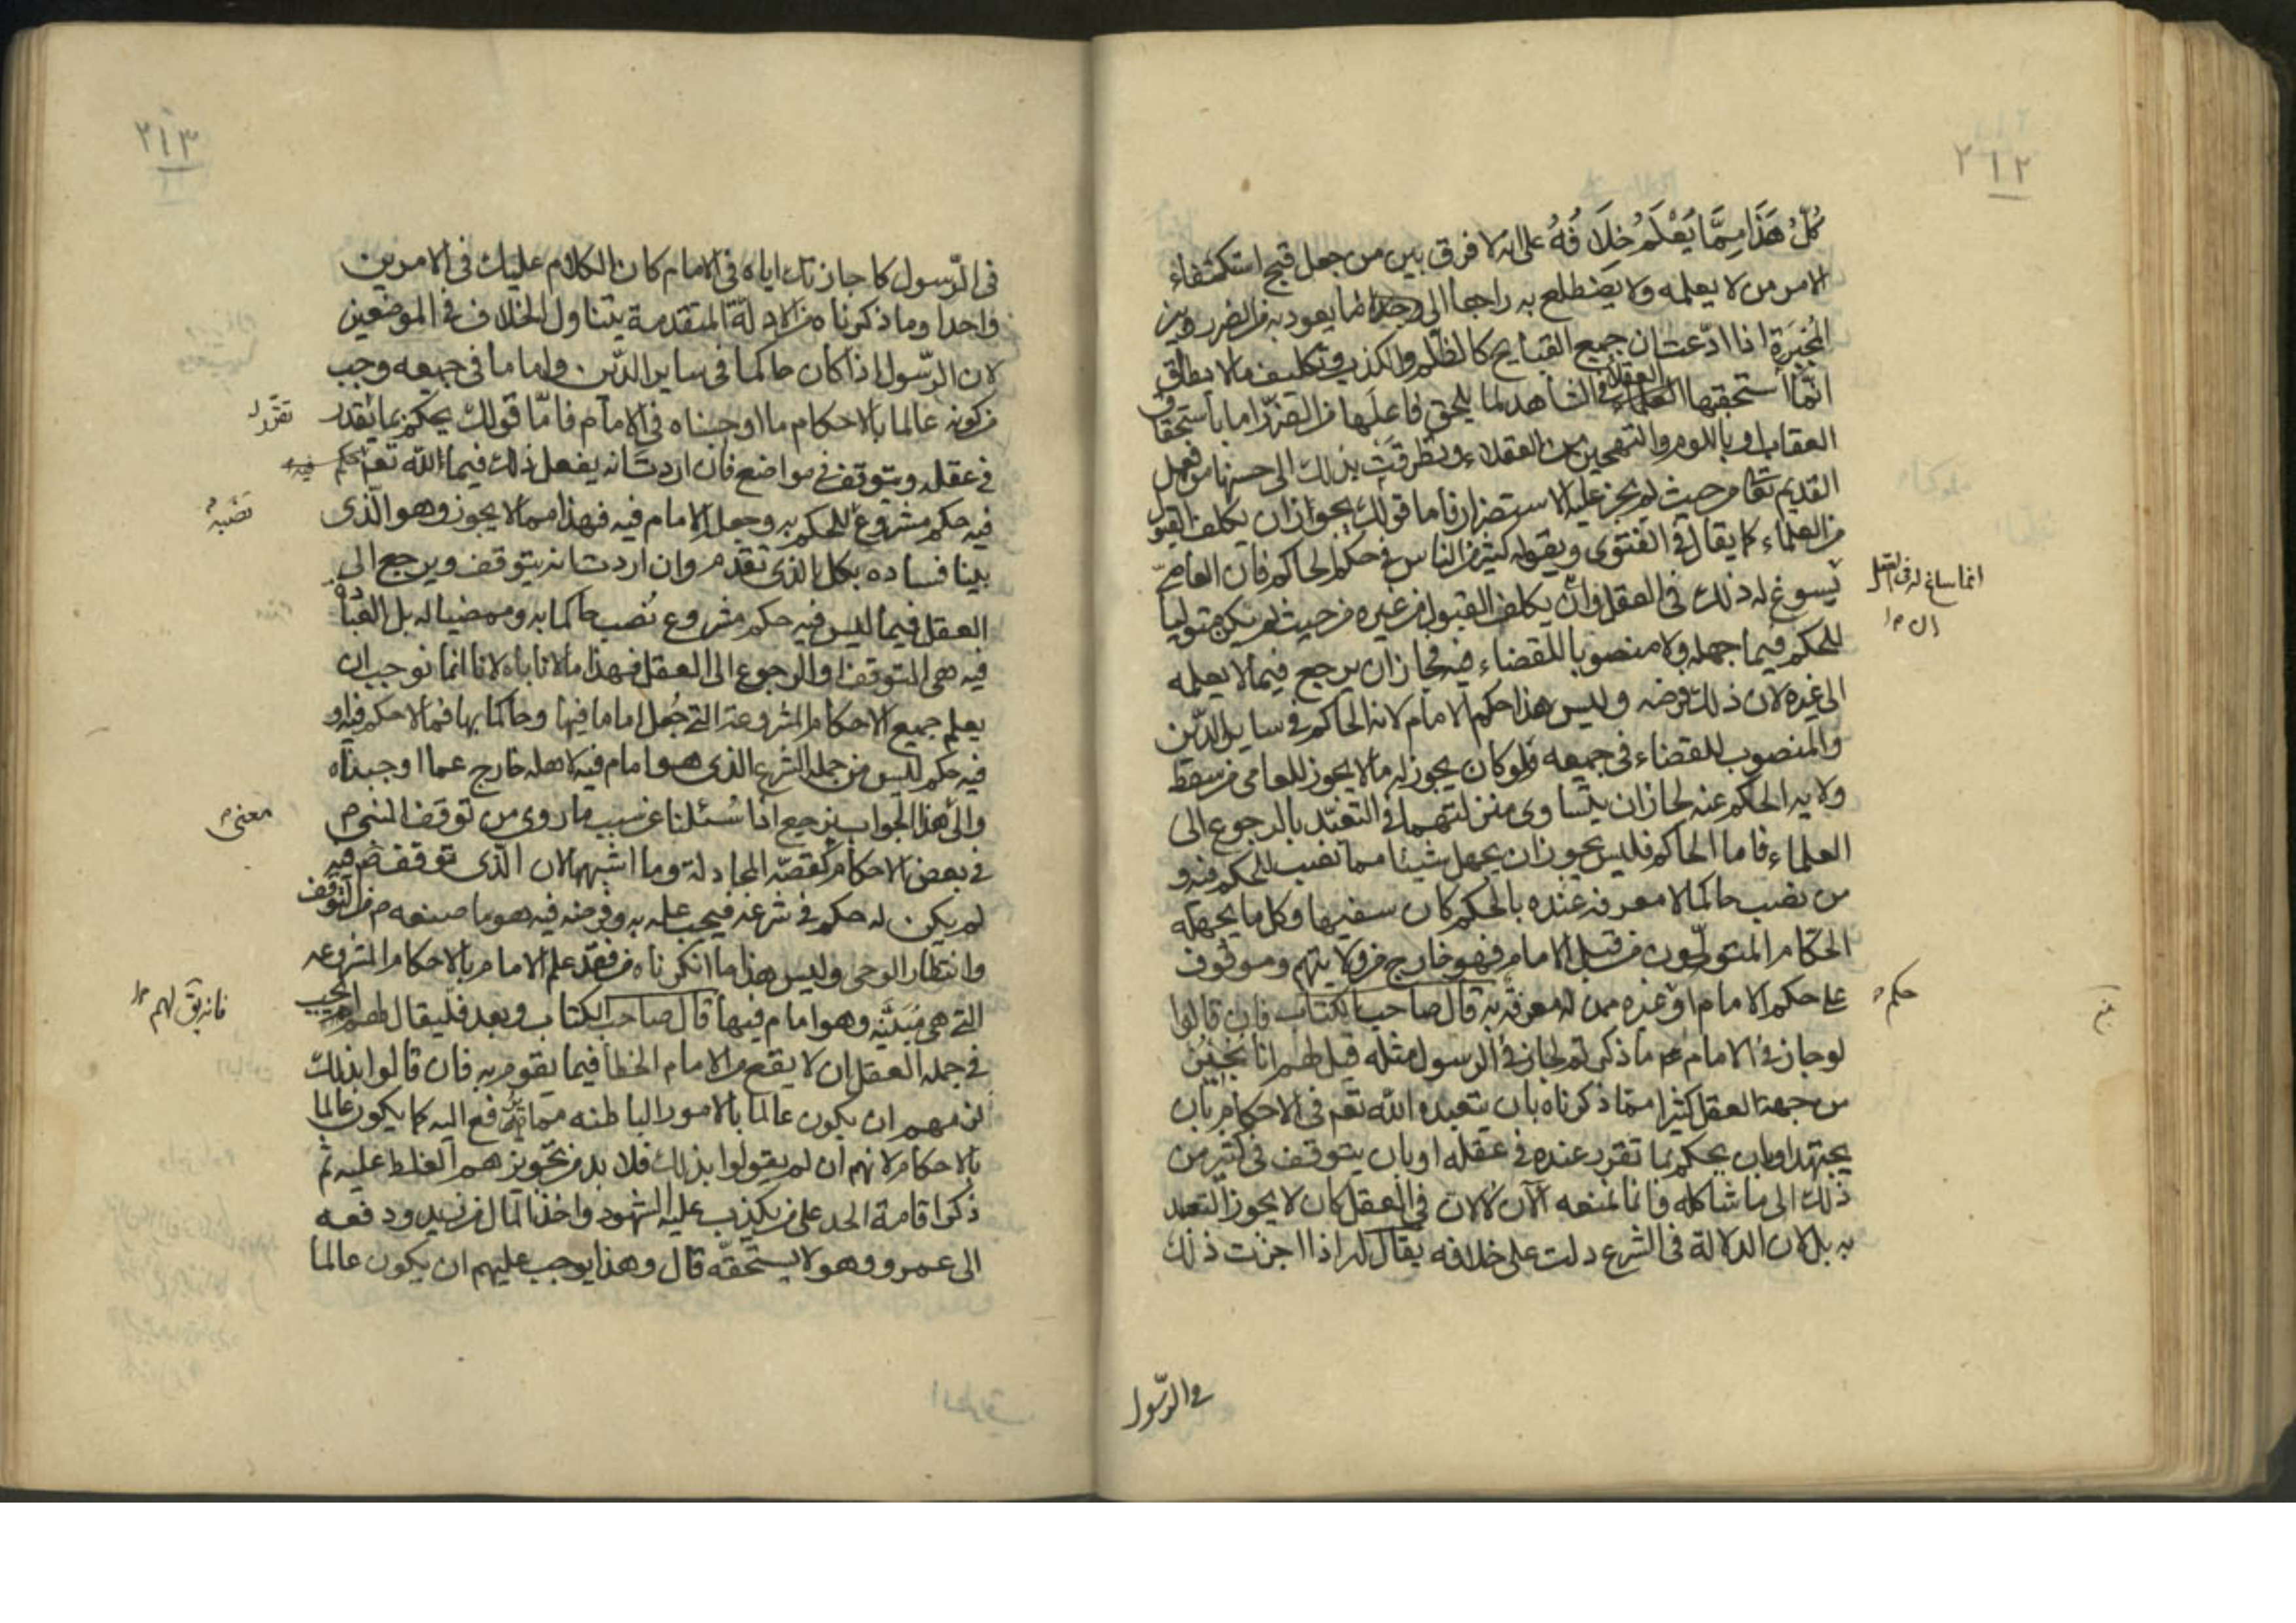 ٢١٢
كُلُّ هَذَا مِمَّا يُعْلَمُ خِلَافُهُ على انه لا فرق بين من جعل قبح استكفاء
الامر من لا يعلمه ولا يضطلع به راجعا الى وجدانا يعود به من الضرر وبين
المُجبَرَة اذا ادّعت ان جميع القبايح كالظلم والكذب وتكليف ما لا يطاق
انمّا استحقبها العقلاء في الشاهد لما يلحق فاعلها من الضرر اما باستحقاق
العقاب او باللوم والتهجين من العقلاء وتطرقت بذلك الى حسنها من فعل
القديم تعا من حيث لم يجز عليه الاستضرار فاما قولك يجواز ان يكلف القبول
من العلماء كما يقال في الفتوى ويقوله كثير من الناس في حكم الحاكم فان العامى
يسوغ له ذلك في العقل وان يكلف القبول من غيره من حيث لم يكن متوليا
انما ساغ له في العقل
ان
للحكم فيما جهله ولا منصوبا للقضاء فيه فجاز ان يرجع فيما لا يعلمه
الى غيره لان ذلك فرضه وليس هذا حكم الامام لانه الحاكم في ساير الدّين
والمنصوب للقضاء في جميعه فلو كان يجوز له ما لا يجوز للعامى من سقط
ولايه الحكم عنه لجاز ان يتساوى منزلتهما في التعبّد بالرجوع الى
العلماء فاما الحاكم فليس يجوز ان يجهل شيئا مما نصب للحكم فيه و
من نصب حاكما لا معرفة عنده بالحكم كان سفيها وكل ما يجهله
الحكّام المتولّون من قبل الامام فهو خارج من ولايتهم وموقوف
على حكم الامام او غيره ممن له معرفة به قال صاحب الكتاب فان قالوا
حكم
لو جاز في الامام عم ما ذكرتم لجاز في الرسول مثله قيل لهم انا نُجيزُ
من جهة العقل كثيرا ممّا ذكرناه بان يتعبده الله تعم في الاحكام بان
يجتهد او بان يحكم بما تقرر عنده في عقله او بان يتوقف في كثير من
ذلك الى ما شاكله فانما نمنعه الآن لا لان في العقل كان لا يجوز التعبد
به بل لان الدلالة في الشرع دلت على خلافه يقال له اذا اجزت ذلك
في الرّسول
٢١٣
في الرّسول كما جاز تك اياه في الامام كان الكلام عليك في الامرين
واحدا وما ذكرناه من الادلة المتقدمة يتناول الخلاف في الموضعين
لان الرّسول اذا كان حاكما في ساير الدّين واماما في جميعه وجب
من كونه عالما بالاحكام ما اوجبناه في الامام فامّا قولك يحكم بما يقدر
تقرّر
في عقله ويتوقف في مواضع فان اردت انه يفعل ذلك فيما الله تعم
فيه حكم مشروع للحكم به وجعل الامام فيه فهذا مما لا يجوز وهو الّذى
نصبه
بينا فساده بكل الذى تقدم وان اردت انه يتوقف ويرجع الى
العقل فيما ليس فيه حكم مشروع نُصب حاكما به وممضيا له بل العبادة
فيه هى التوقف او الرجوع الى العقل فهذا ما لا ناباه لانا انما نوجب ان
يعلم جميع الاحكام المشروعة التي جُعل اماما فيها وحاكما بها فما لا حكم فيه او
فيه حكم ليس من جمله الشرع الذى هو امام فيه لاهله خارج عما اوجبناه
والى هذا الجواب يرجع اذا سُئلنا عن سبب ما روى من توقف النبى
معنى
في بعض الاحكام كقصّة المجادلة وما اشبهها لان الّذى توقف ص فيه
لم يكن له حكم في شرعه فيجب علمه به وفرضه فيه هو ما صنعه من التوقف
وانتظار الوحى وليس هذا ما انكرناه من فقد علم الامام بالاحكام المشروعه
التي هى مُبَيَّنة وهو امام فيها قال صاحب الكتاب وبعد فليقال لهم ايجب
في جمله العقل ان لا يقع من الامام الخطأ فيما يقوم به فان قالوا بذلك
لزمهم ان يكون عالما بالامور الباطنه مما ترفع اليه كما يكون عالما
بالاحكام لانهم ان لم يقولوا بذلك فلا بد من تجويزهم الغلط عليه ثم
ذكر اقامة الحد على من يكذب عليه الشهود واخذ المال من زيد ودفعه
الى عمرو وهو لا يستحقّه قال وهذا يوجب عليهم ان يكون عالما